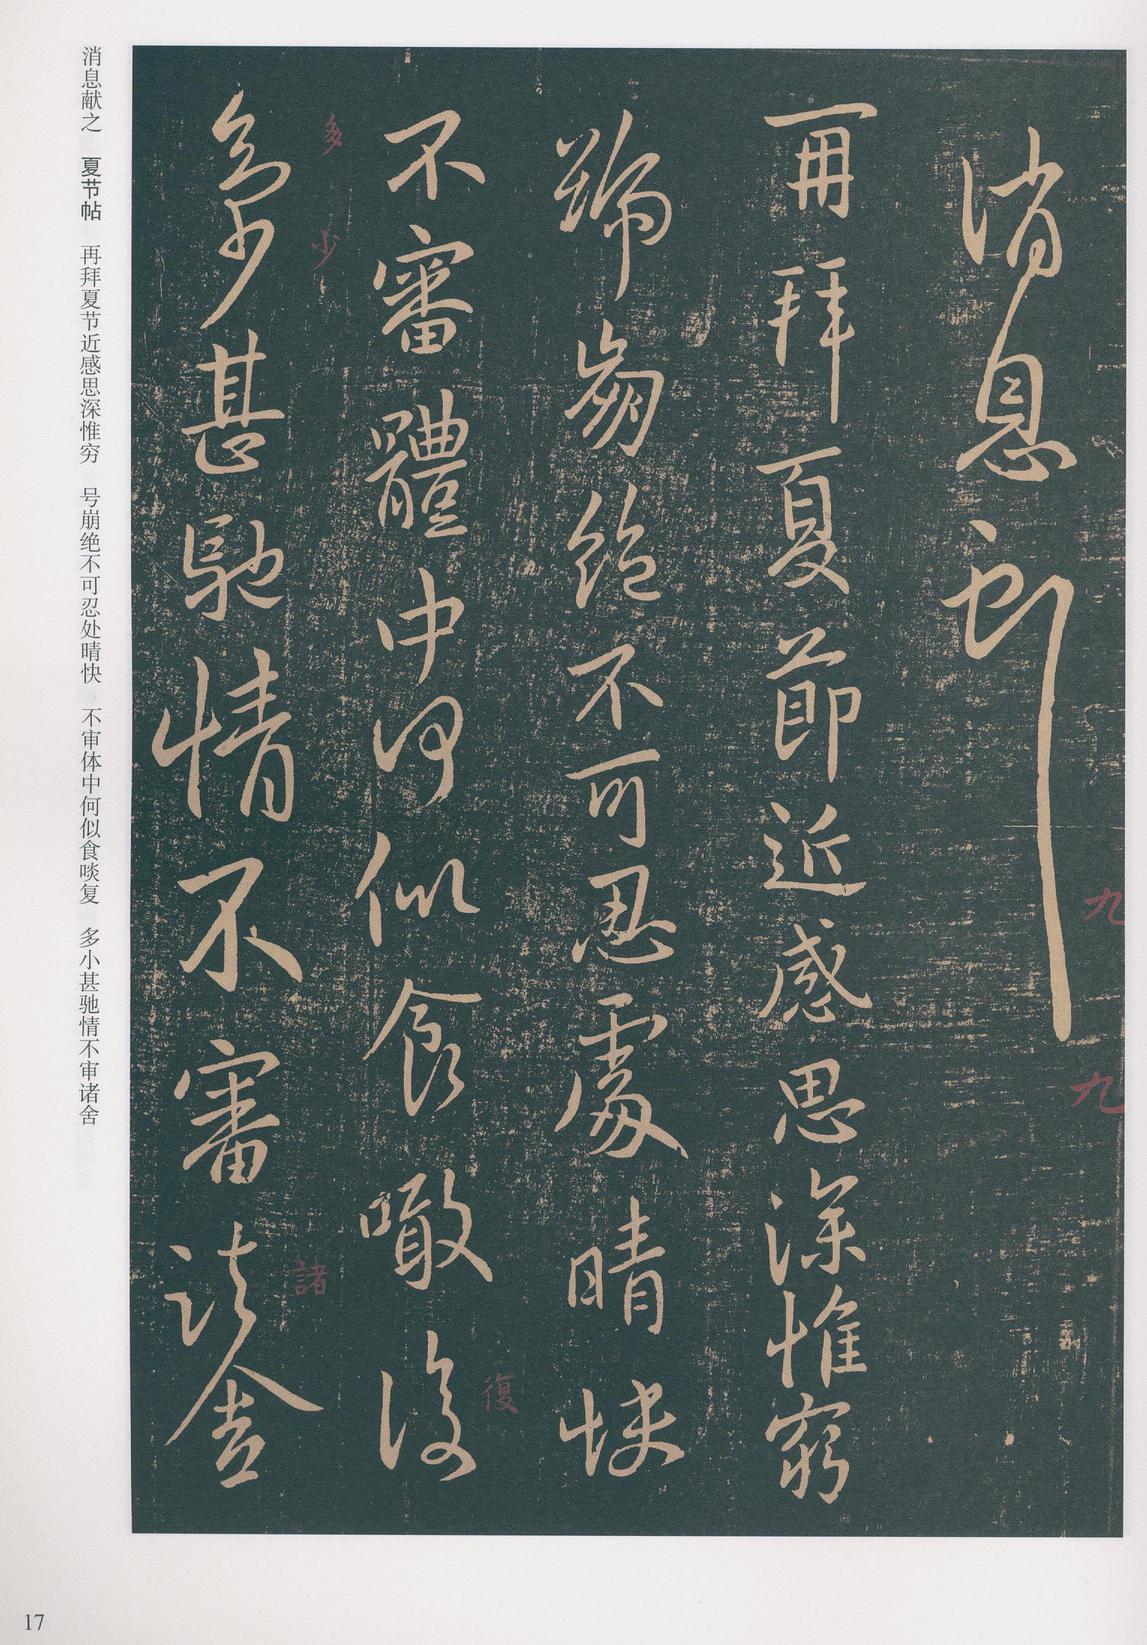 消息献之
再拜夏節近感思深惟窮
號崩絶不可忍處晴快
不審體中何似食噉復
多少甚馳情不審諸舍
九
九
復
多
少
諸
消息献之 夏节帖 再拜夏节近感思深惟穷 号崩绝不可忍处晴快 不审体中何似食啖复 多小甚驰情不审诸舍
17